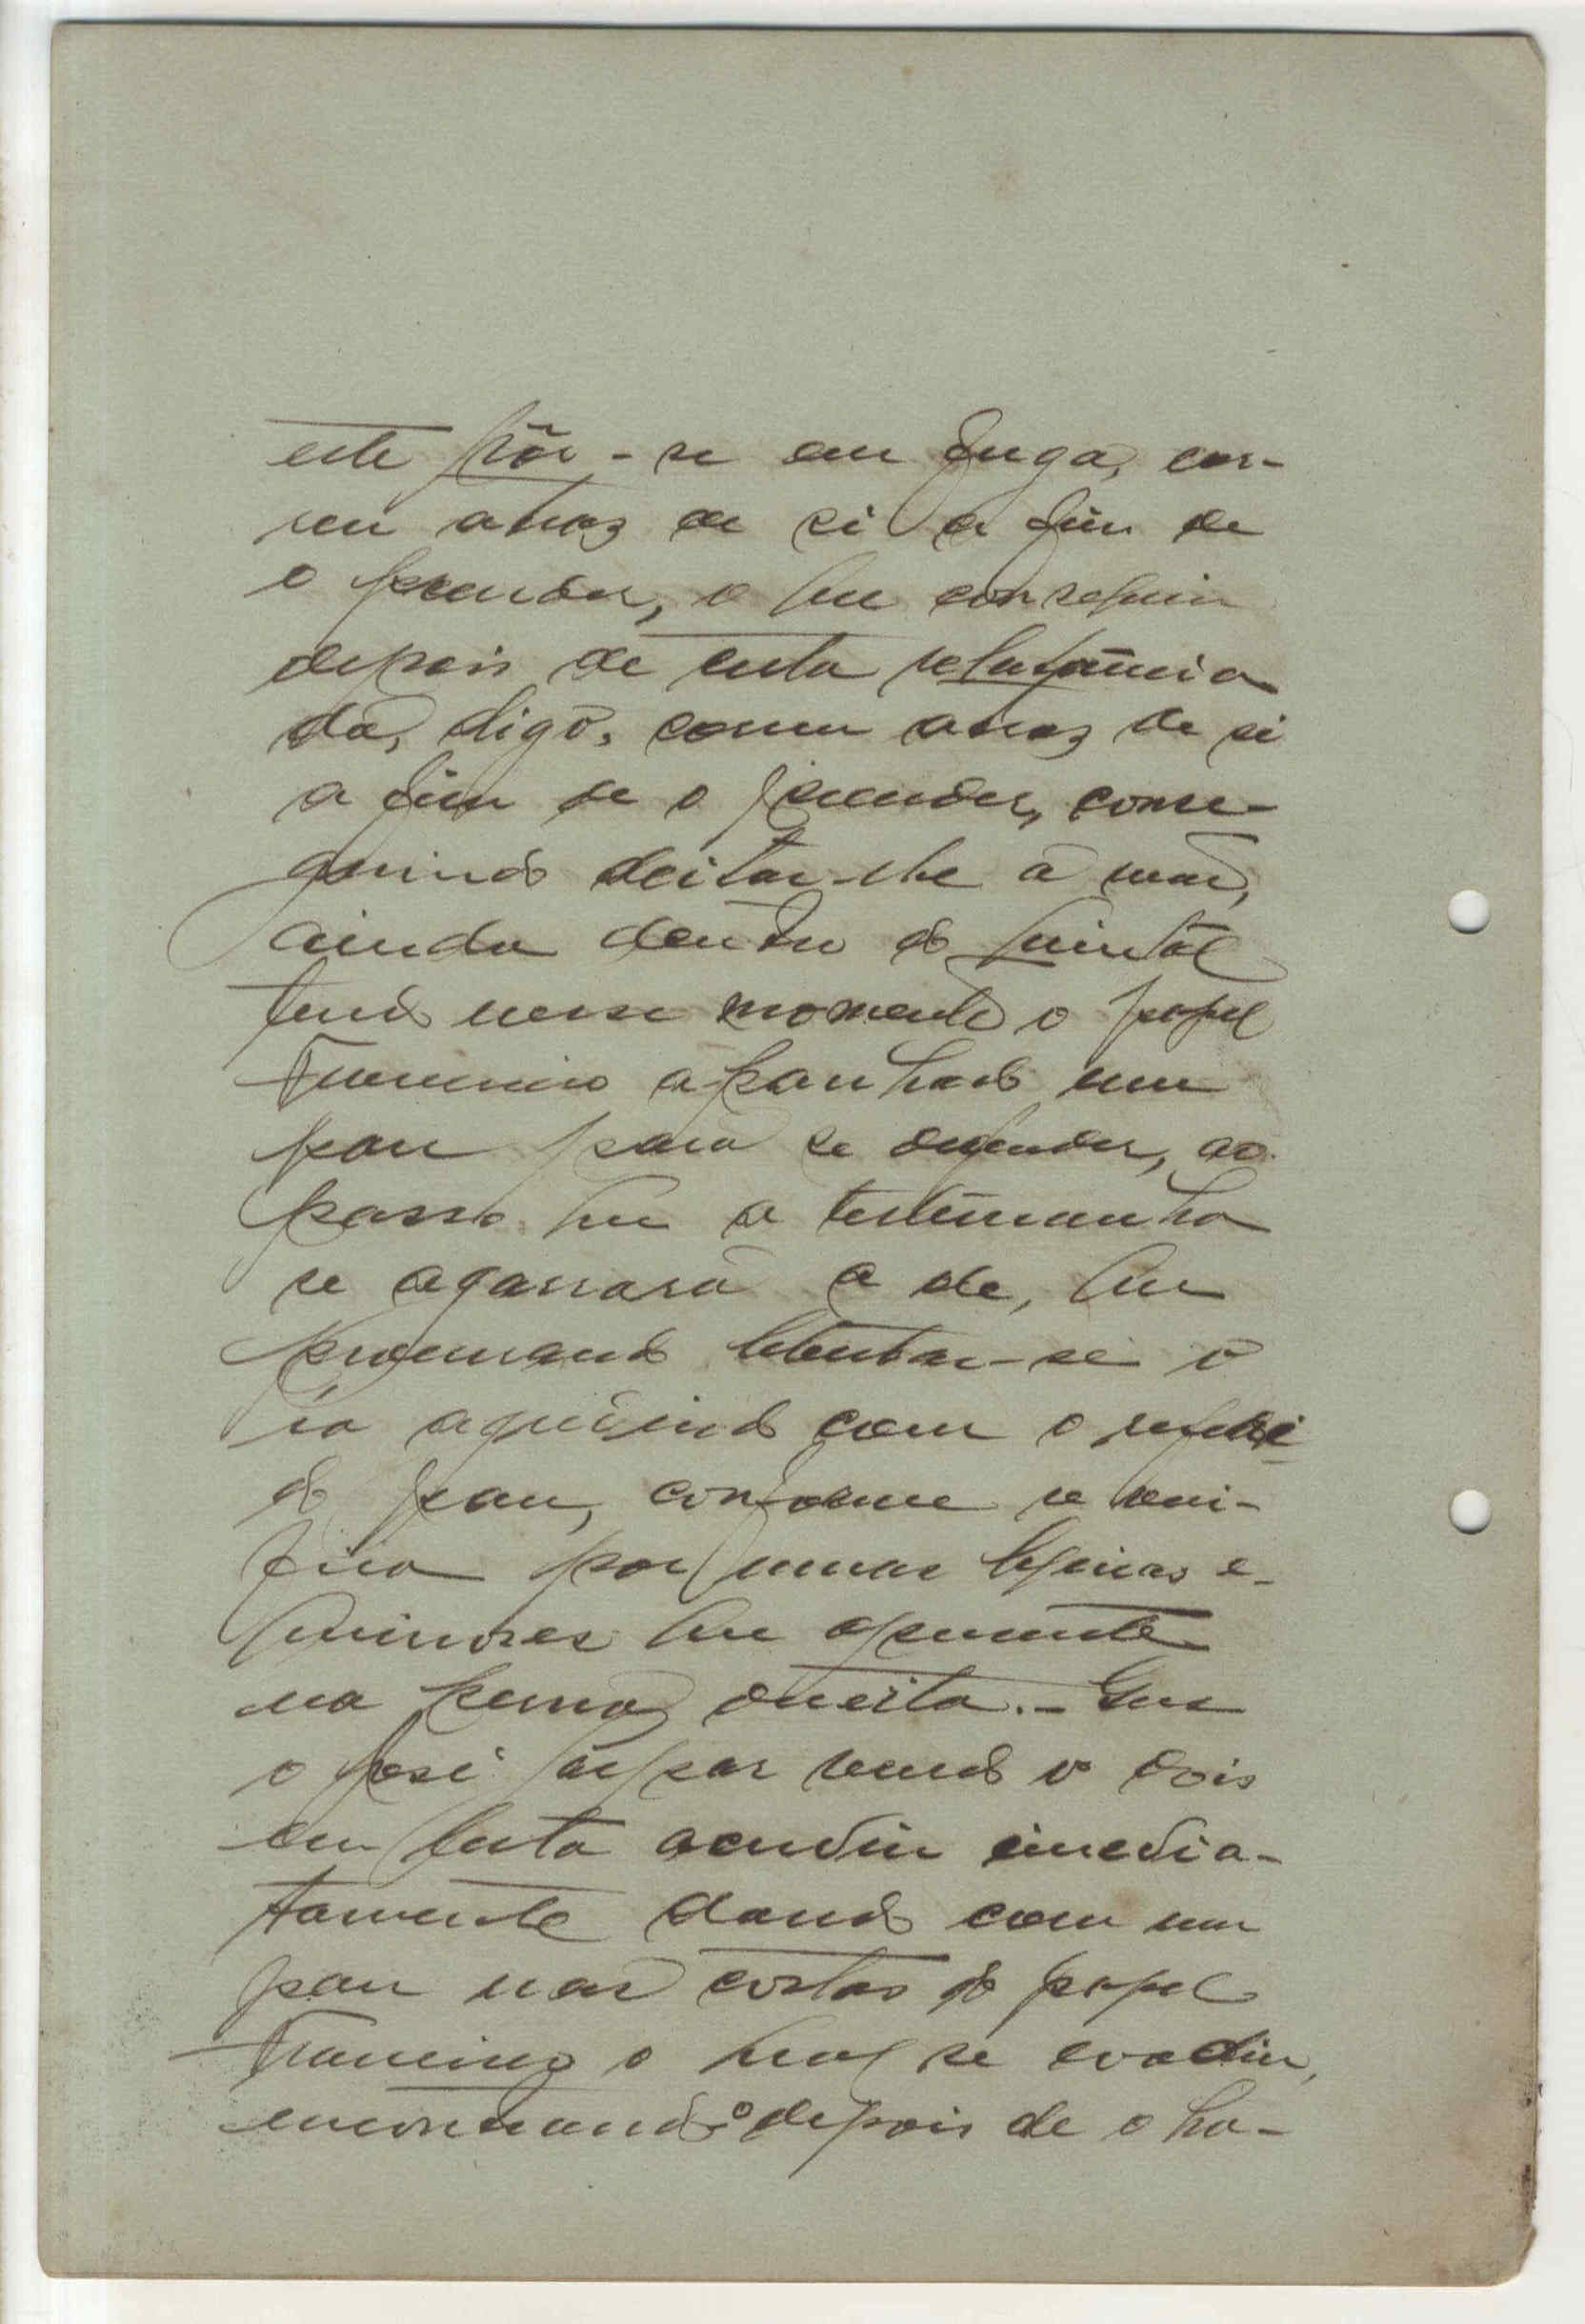 este pôr-se em fuga, cor-
reu atraz de si a fim de
o prender, o que conseguiu
depois de certa relutancia
da, digo, correu atraz de si
a fim de o prender, conse-
guindo deitar-lhe a mão,
ainda dentro do quintal
tendo nesse momento o
Francisco apanhado um
pau para se defender, ao
passo que a testemunha
se agarrara a ele, que
procurando libertar-se o
ia agredindo com o referi-
do pau, conforme se veri-
fica por umas ligeiras e-
quimoses que apresenta
na perna direita. - Que
o José Gaspar vendo os dois
em luta acudiu imedia-
tamente dando com um
pau nas costas do
Francisco o qual se evadiu,
encontrando-o depois de o ha-